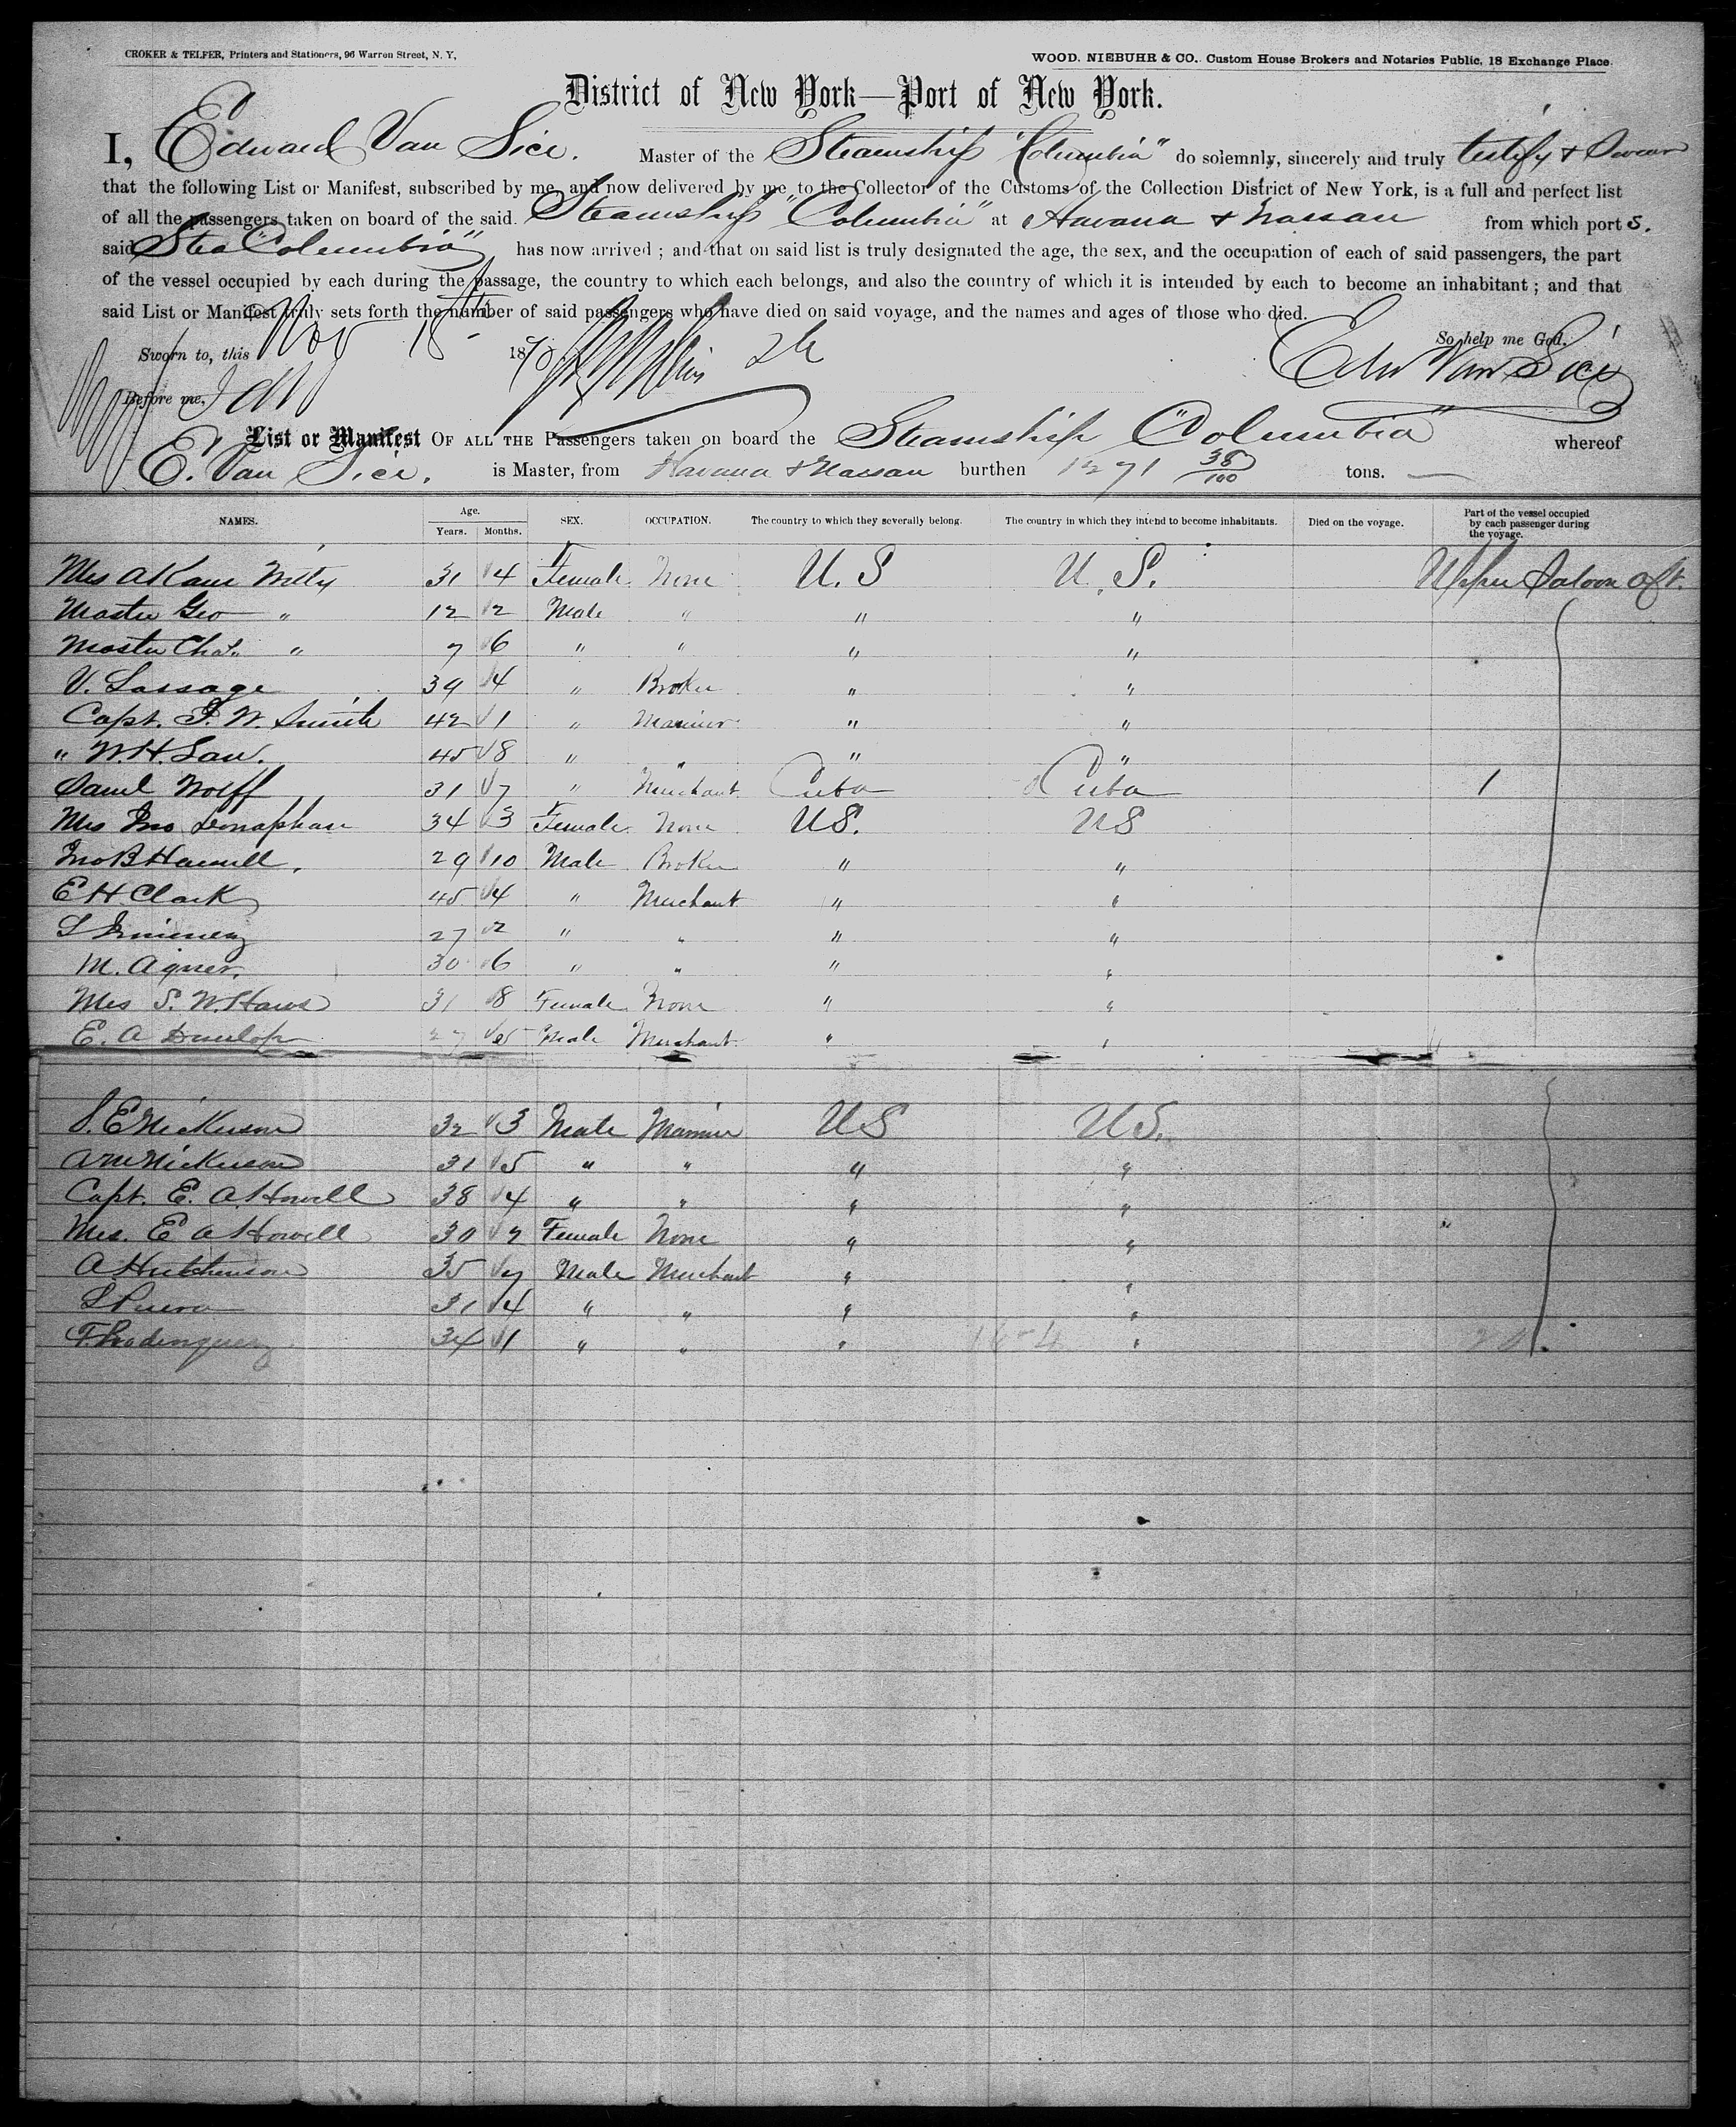 CROKER & TELFER, Printers and Stationers, 96 Warren Street, N. Y,
WOOD, NIEBUHR & CO., Custom House Brokers and Notaries Public, 18 Exchange Place.
District of New York—Port of New York.
I, Edward Van Sice. Master of the Steamship "Columbia" do solemnly, sincerely and truly testify & Swear
that the following List or Manifest, subscribed by me, and now delivered by me to the Collector of the Customs of the Collection District of New York, is a full and perfect list
of all the passengers taken on board of the said. Steamship "Columbia" at Havana & Nassau from which port s.
said Stea "Columbia" has now arrived ; and that on said list is truly designated the age, the sex, and the occupation of each of said passengers, the part
of the vessel occupied by each during the passage, the country to which each belongs, and also the country of which it is intended by each to become an inhabitant ; and that
said List or Manifest truly sets forth the number of said passengers who have died on said voyage, and the names and ages of those who died.
So help me God.
Sworn to, this Nov 18th 187
Edw Van Sice
Before me,
List or Manifest OF ALL THE Passengers taken on board the Steamship "Columbia" whereof
E. Van Sice. is Master, from Havana & Nassau burthen 1271 38/100 tons.
NAMES. Age. Years. Months. SEX. OCCUPATION. The country to which they severally belong. The country in which they intend to become inhabitants. Died on the voyage. Part of the vessel occupied by each passenger during the voyage.
Mrs A Kane 31 4 Female None U. S U. S. Upper Saloon aft.
Master Geo " 12 2 Male " " "
Master Chas. " 7 6 " " " "
V. Lassage 39 4 " Broker " "
Capt. F. W. Smith 42 1 " Mariner " "
" W. H. Law. 45 8 " " " "
Saml Wolff 31 7 " Merchant Cuba Cuba 1
Mrs Jno 34 3 Female None US. US
Jno B Hamill 29 10 Male Broker " "
E H Clark 45 4 " Merchant " "
27 2 " " " "
M. Agner. 30 6 " " " "
Mrs S. W. Haws 31 8 Female None " "
E. A Dunlop 27 Male Merchant " "
S. E Nickerson 32 3 Male Mariner US US.
A M Nickerson 31 5 " " " "
Capt. E. A Howell 38 4 " " " "
Mrs. E A Howell 30 2 Female None " "
A Hutchinson 35 Male Merchant " "
31 4 " " " "
F. Rodinquez 34 1 " " " "